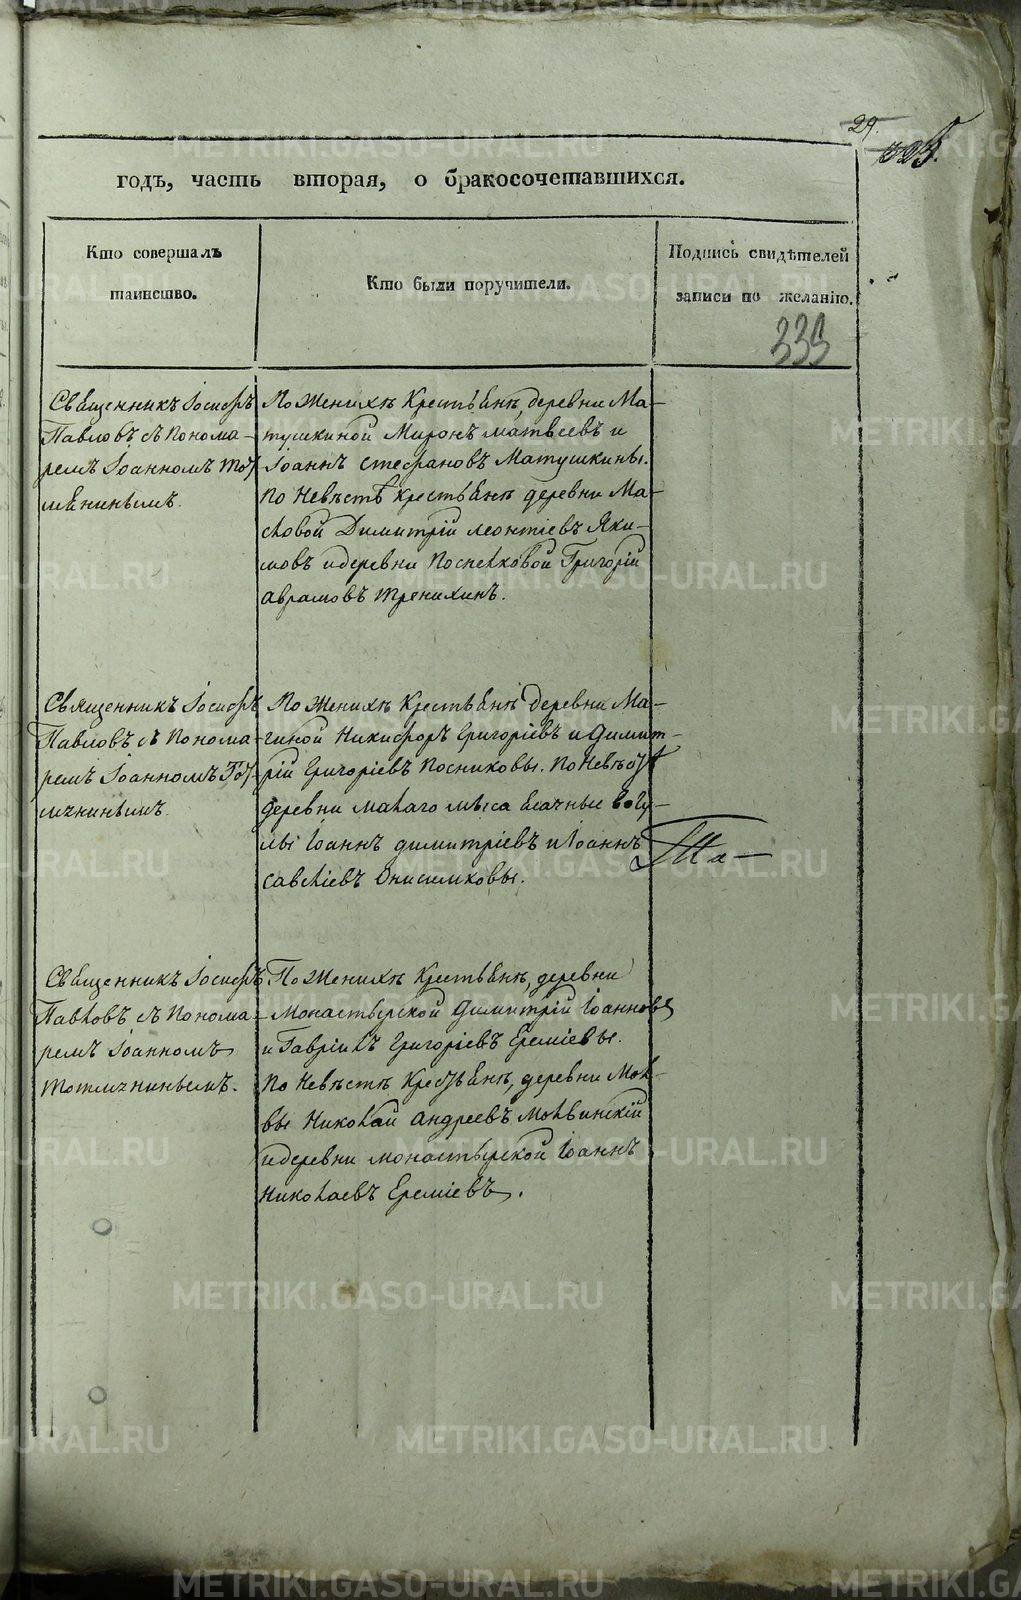 29.
годъ, часть вторая, о бракосочетавшихся.
Кто совершалъ
таинство.
Кто были поручители.
Подпись свидѣтелей
записи по желанію.
339
Священникъ Іосифъ
Павловъ съ понома-
ремъ Іоанномъ
По женихѣ Крестьянѣ, деревни Ма-
тушкиной Миронъ Матвѣевъ и
Іоаннъ Стефановъ Матушкины.
По невѣстѣ крестьянѣ деревни Ма-
словой Димитрій Леонтіевъ Яки-
мовъ и деревни Поспелковой Григорій
Аврамовъ Тренихинъ.
Священникъ Іосифъ
Павловъ съ понома-
ремъ Іоанномъ
По женихѣ Крестьянѣ деревни Ма-
гиной Никифоръ Григоріевъ и Димит-
рій Григоріевъ Посниковы. По невѣстѣ
деревни Малаго мыса ясачные вогу-
лы Іоаннъ Димитріевъ и Іоаннъ
Савліевъ Онисимковы.
Священникъ Іосифъ
Павловъ съ понома-
ремъ Іоанномъ
Тотмяниннымъ.
По женихѣ Крестьянѣ, деревни
Монастырской Димитрій Іоанновъ
и Гавріилъ Григоріевъ Еремѣевы.
По невѣстѣ Крестьянѣ, деревни Мол-
вы Николай Андреевъ Молвинскій
и деревни Монастырской Іоаннъ
Николаевъ Еремѣевъ.
METRIKI.GASO-URAL.RU